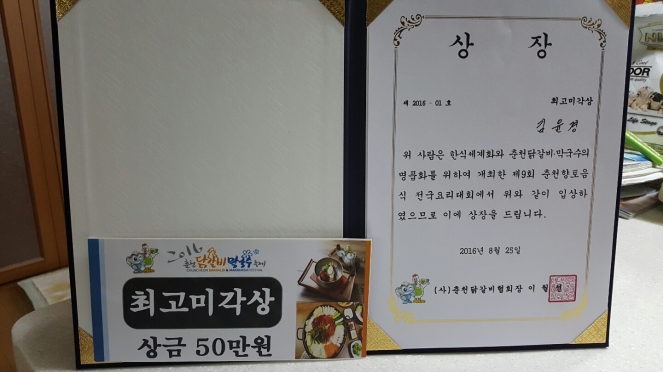 상 장
제 2016 - 01 호
최고미각상
김 윤 경
위 사람은 한식세계화와 춘천닭갈비·막국수의
명품화를 위하여 개최한 제9회 춘천향토음
식 전국요리대회에서 위와 같이 입상하
였으므로 이에 상장을 드립니다.
2016년 8월 25일
(사)춘천닭갈비협회장 이
2016
춘천 닭갈비 막국수 축제
CHUNCHEON DAKGALBI & MAKGUKSU FESTIVAL
최고미각상
상금 50만원